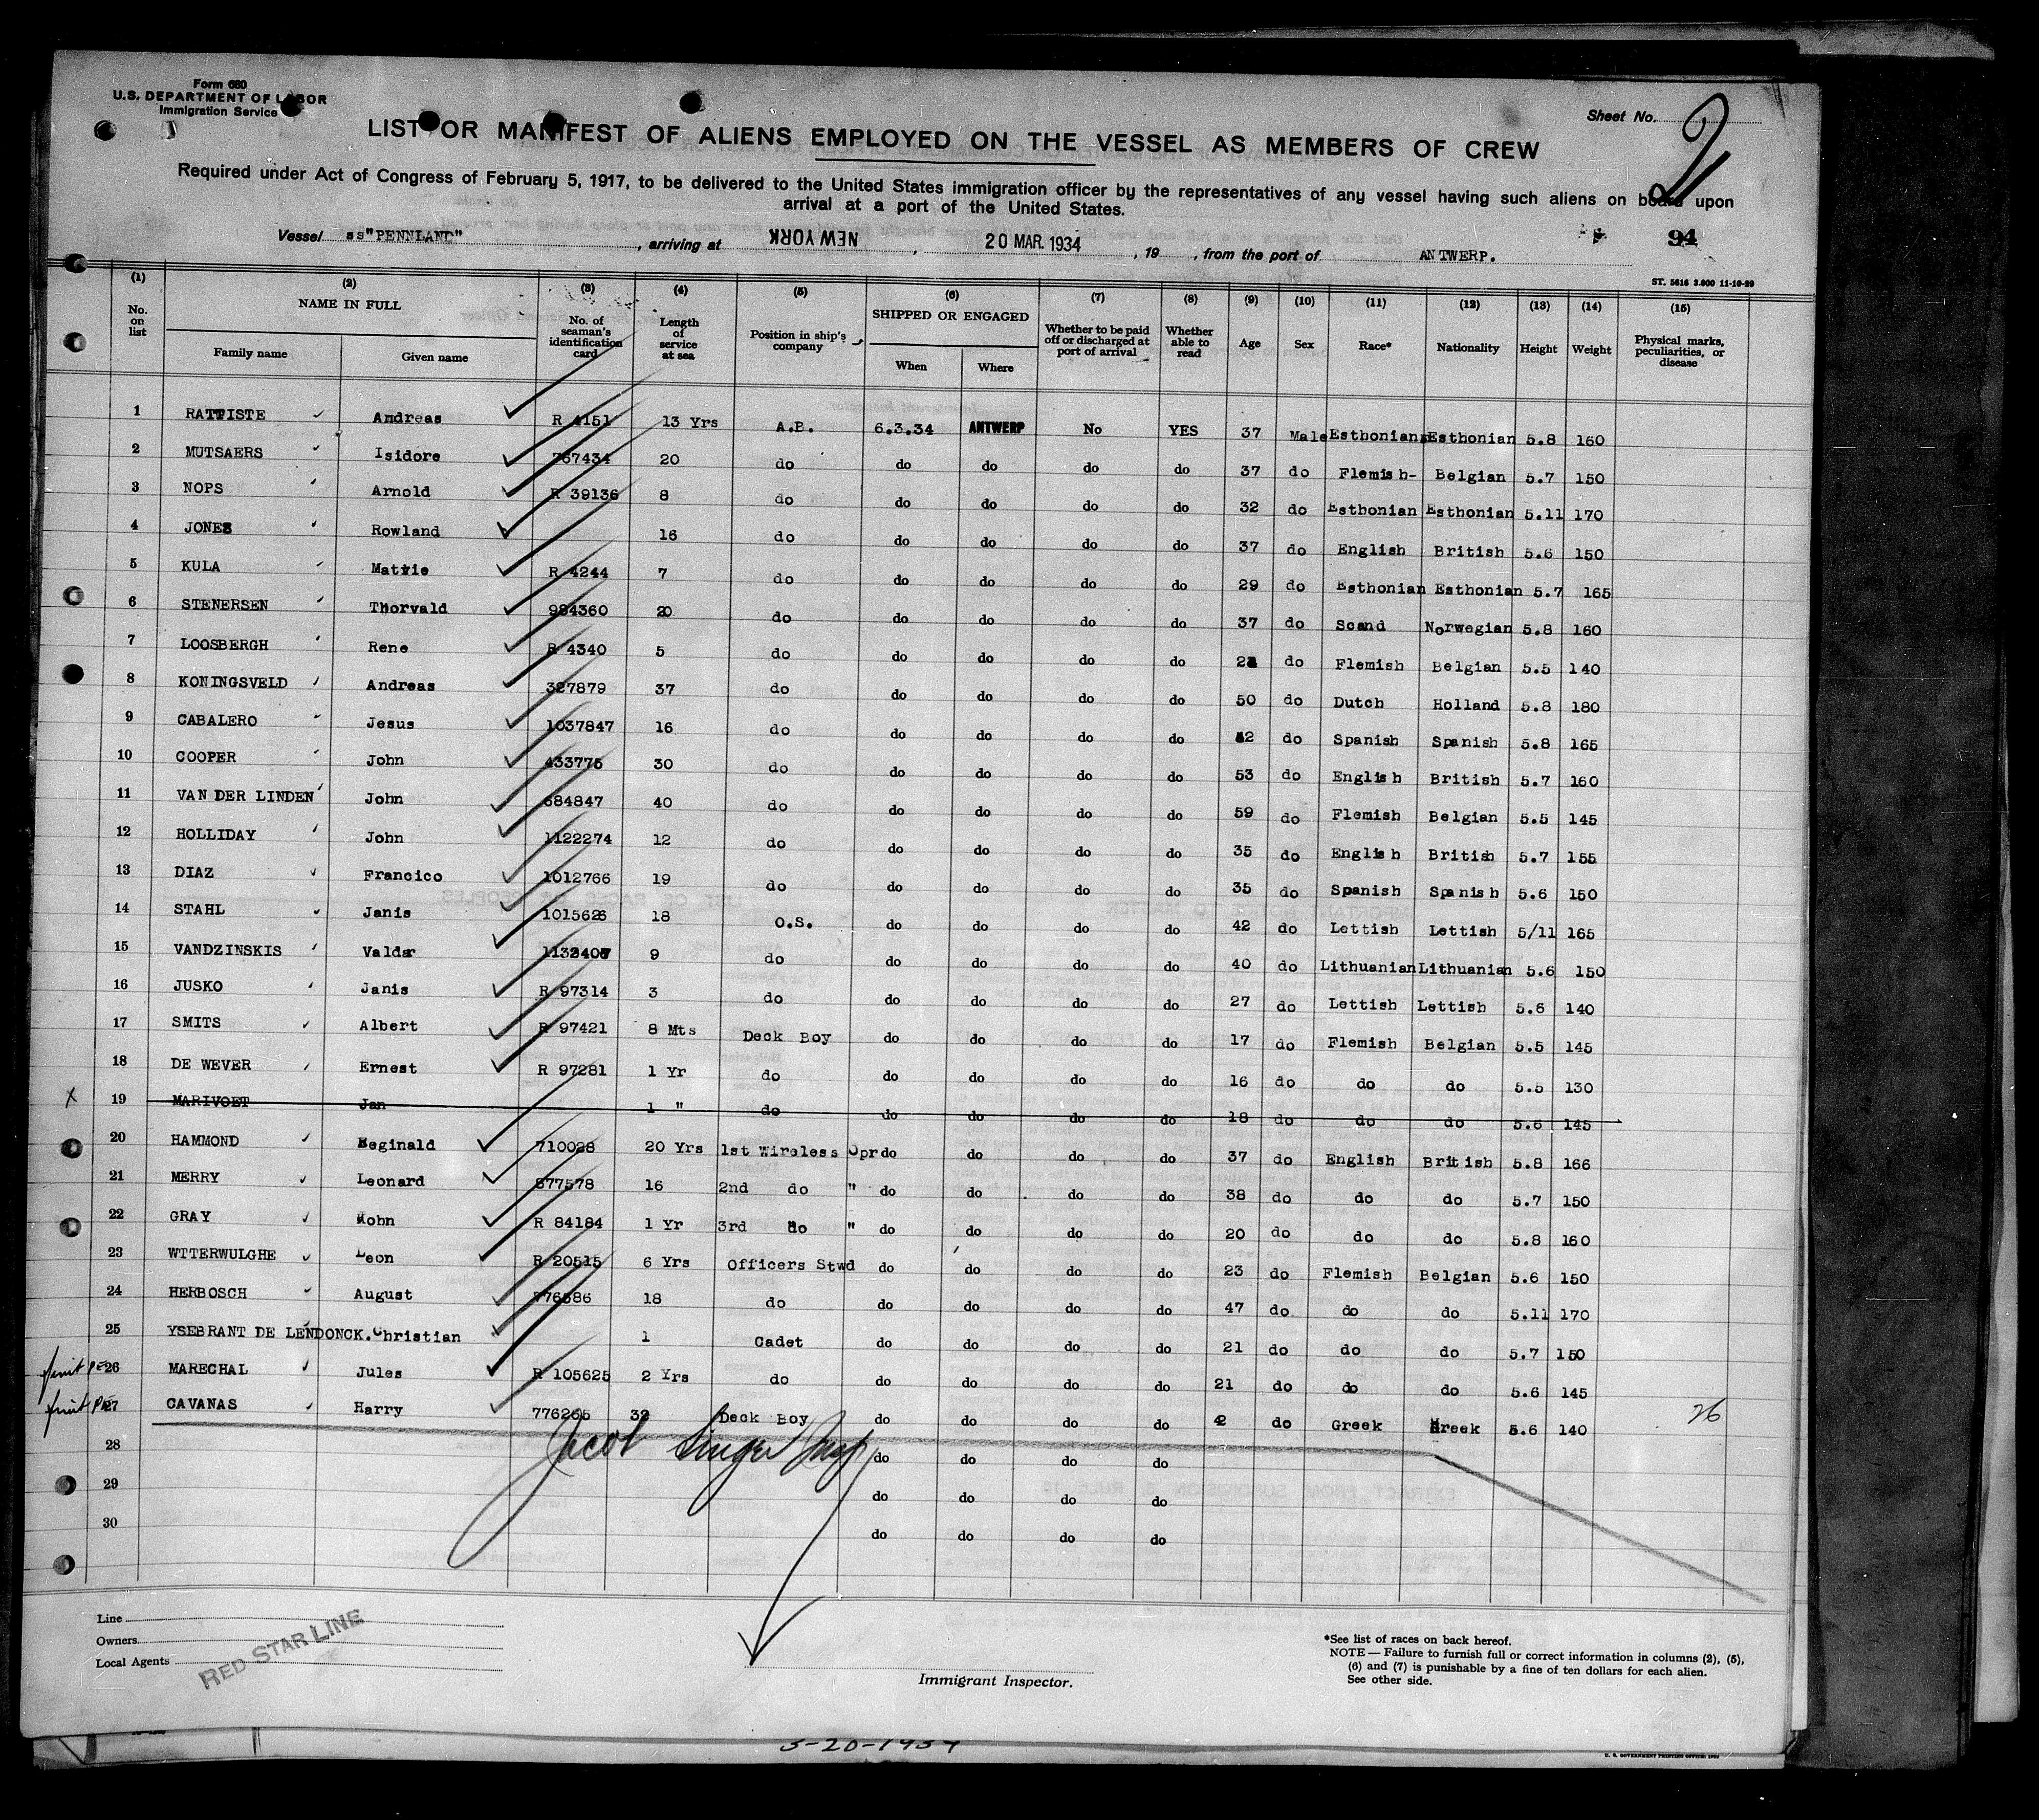 Form 680
U.S. DEPARTMENT OF LABOR
Immigration Service
Sheet No. 2
LIST OR MANIFEST OF ALIENS EMPLOYED ON THE VESSEL AS MEMBERS OF CREW
Required under Act of Congress of February 5, 1917, to be delivered to the United States immigration officer by the representatives of any vessel having such aliens on board upon
arrival at a port of the United States.
Vessel ss"PENNLAND", arriving at NEW YORK, 20 MAR. 1934, 19 , from the port of ANTWERP. 94
ST. 5616 3.000 11-10-29
(1) (2) (3) (4) (5) (6) (7) (8) (9) (10) (11) (12) (13) (14) (15)
No. on list NAME IN FULL Family name Given name No. of seaman's identification card Length of service at sea Position in ship's company SHIPPED OR ENGAGED When Where Whether to be paid off or discharged at port of arrival Whether able to read Age Sex Race* Nationality Height Weight Physical marks, peculiarities, or disease
1 RATTISTE Andreas R 4151 13 Yrs A.B. 6.3.34 ANTWERP No YES 37 Male Esthonian Esthonian 5.8 160
2 MUTSAERS Isidore 767434 20 do do do do do 37 do Flemish- Belgian 5.7 150
3 NOPS Arnold R 39136 8 do do do do do 32 do Esthonian Esthonian 5.11 170
4 JONES Rowland 16 do do do do do 37 do English British 5.6 150
5 KULA R 4244 7 do do do do do 29 do Esthonian Esthonian 5.7 165
6 STENERSEN Thorvald 984360 20 do do do do do 37 do Scand Norwegian 5.8 160
7 LOOSBERGH Rene R 4340 5 do do do do do do Flemish Belgian 5.5 140
8 KONINGSVELD Andreas 327879 37 do do do do do 50 do Dutch Holland 5.8 180
9 CABALERO Jesus 1037847 16 do do do do do 42 do Spanish Spanish 5.8 165
10 COOPER John 433775 30 do do do do do 53 do English British 5.7 160
11 VAN DER LINDEN John 684847 40 do do do do do 59 do Flemish Belgian 5.5 145
12 HOLLIDAY John 1122274 12 do do do do do 35 do English British 5.7 155
13 DIAZ Francico 1012766 19 do do do do do 35 do Spanish Spanish 5.6 150
14 STAHL Janis 1015626 18 O.S. do do do do 42 do Lettish Lettish 5/11 165
15 VANDZINSKIS Valdar 1132407 9 do do do do do 40 do Lithuanian Lithuanian 5.6 150
16 JUSKO Janis R 97314 3 do do do do do 27 do Lettish Lettish 5.6 140
17 SMITS Albert R 97421 8 Mts Deck Boy do do do do 17 do Flemish Belgian 5.5 145
18 DE WEVER Ernest R 97281 1 Yr do do do do do 16 do do do 5.5 130
x 19 MARIVOET Jan 1 " do do do do do 18 do do do 5.6 145
20 HAMMOND Reginald 710028 20 Yrs 1st Wireless Opr do do do do 37 do English British 5.8 166
21 MERRY Leonard 877578 16 2nd do " do do do do 38 do do do 5.7 150
22 GRAY John R 84184 1 Yr 3rd do " do do do do 20 do do do 5.8 160
23 WTTERWULGHE Leon R 20515 6 Yrs Officers Stwd do do do do 23 do Flemish Belgian 5.6 150
24 HERBOSCH August 776586 18 do do do do do 47 do do do 5.11 170
25 YSEBRANT DE LENDONCK. Christian 1 Cadet do do do do 21 do do do 5.7 150
26 MARECHAL Jules R 105625 2 Yrs do do do do do 21 do do do 5.6 145
27 CAVANAS Harry 776265 32 Deck Boy do do do do do Greek Greek 5.6 140 26
28 do do do do
29 do do do do
30 do do do do
Jacob Singer Insp
Line
Owners
Local Agents
RED STAR LINE
Immigrant Inspector.
*See list of races on back hereof.
NOTE — Failure to furnish full or correct information in columns (2), (5),
(6) and (7) is punishable by a fine of ten dollars for each alien.
See other side.
3-20-1934
U. S. GOVERNMENT PRINTING OFFICE: 1929